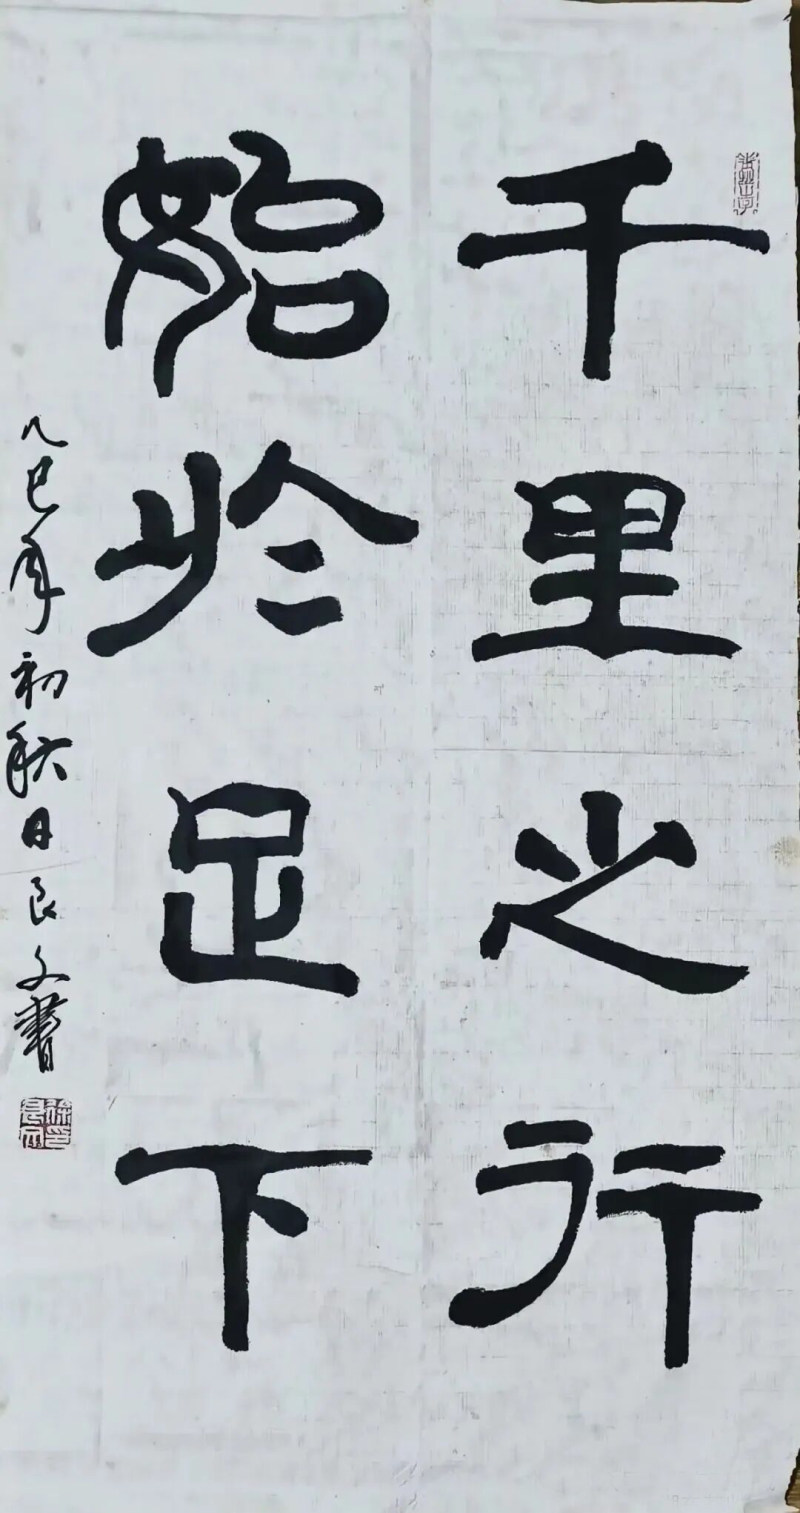 千里之行
始於足下
乙巳年初秋日良文書